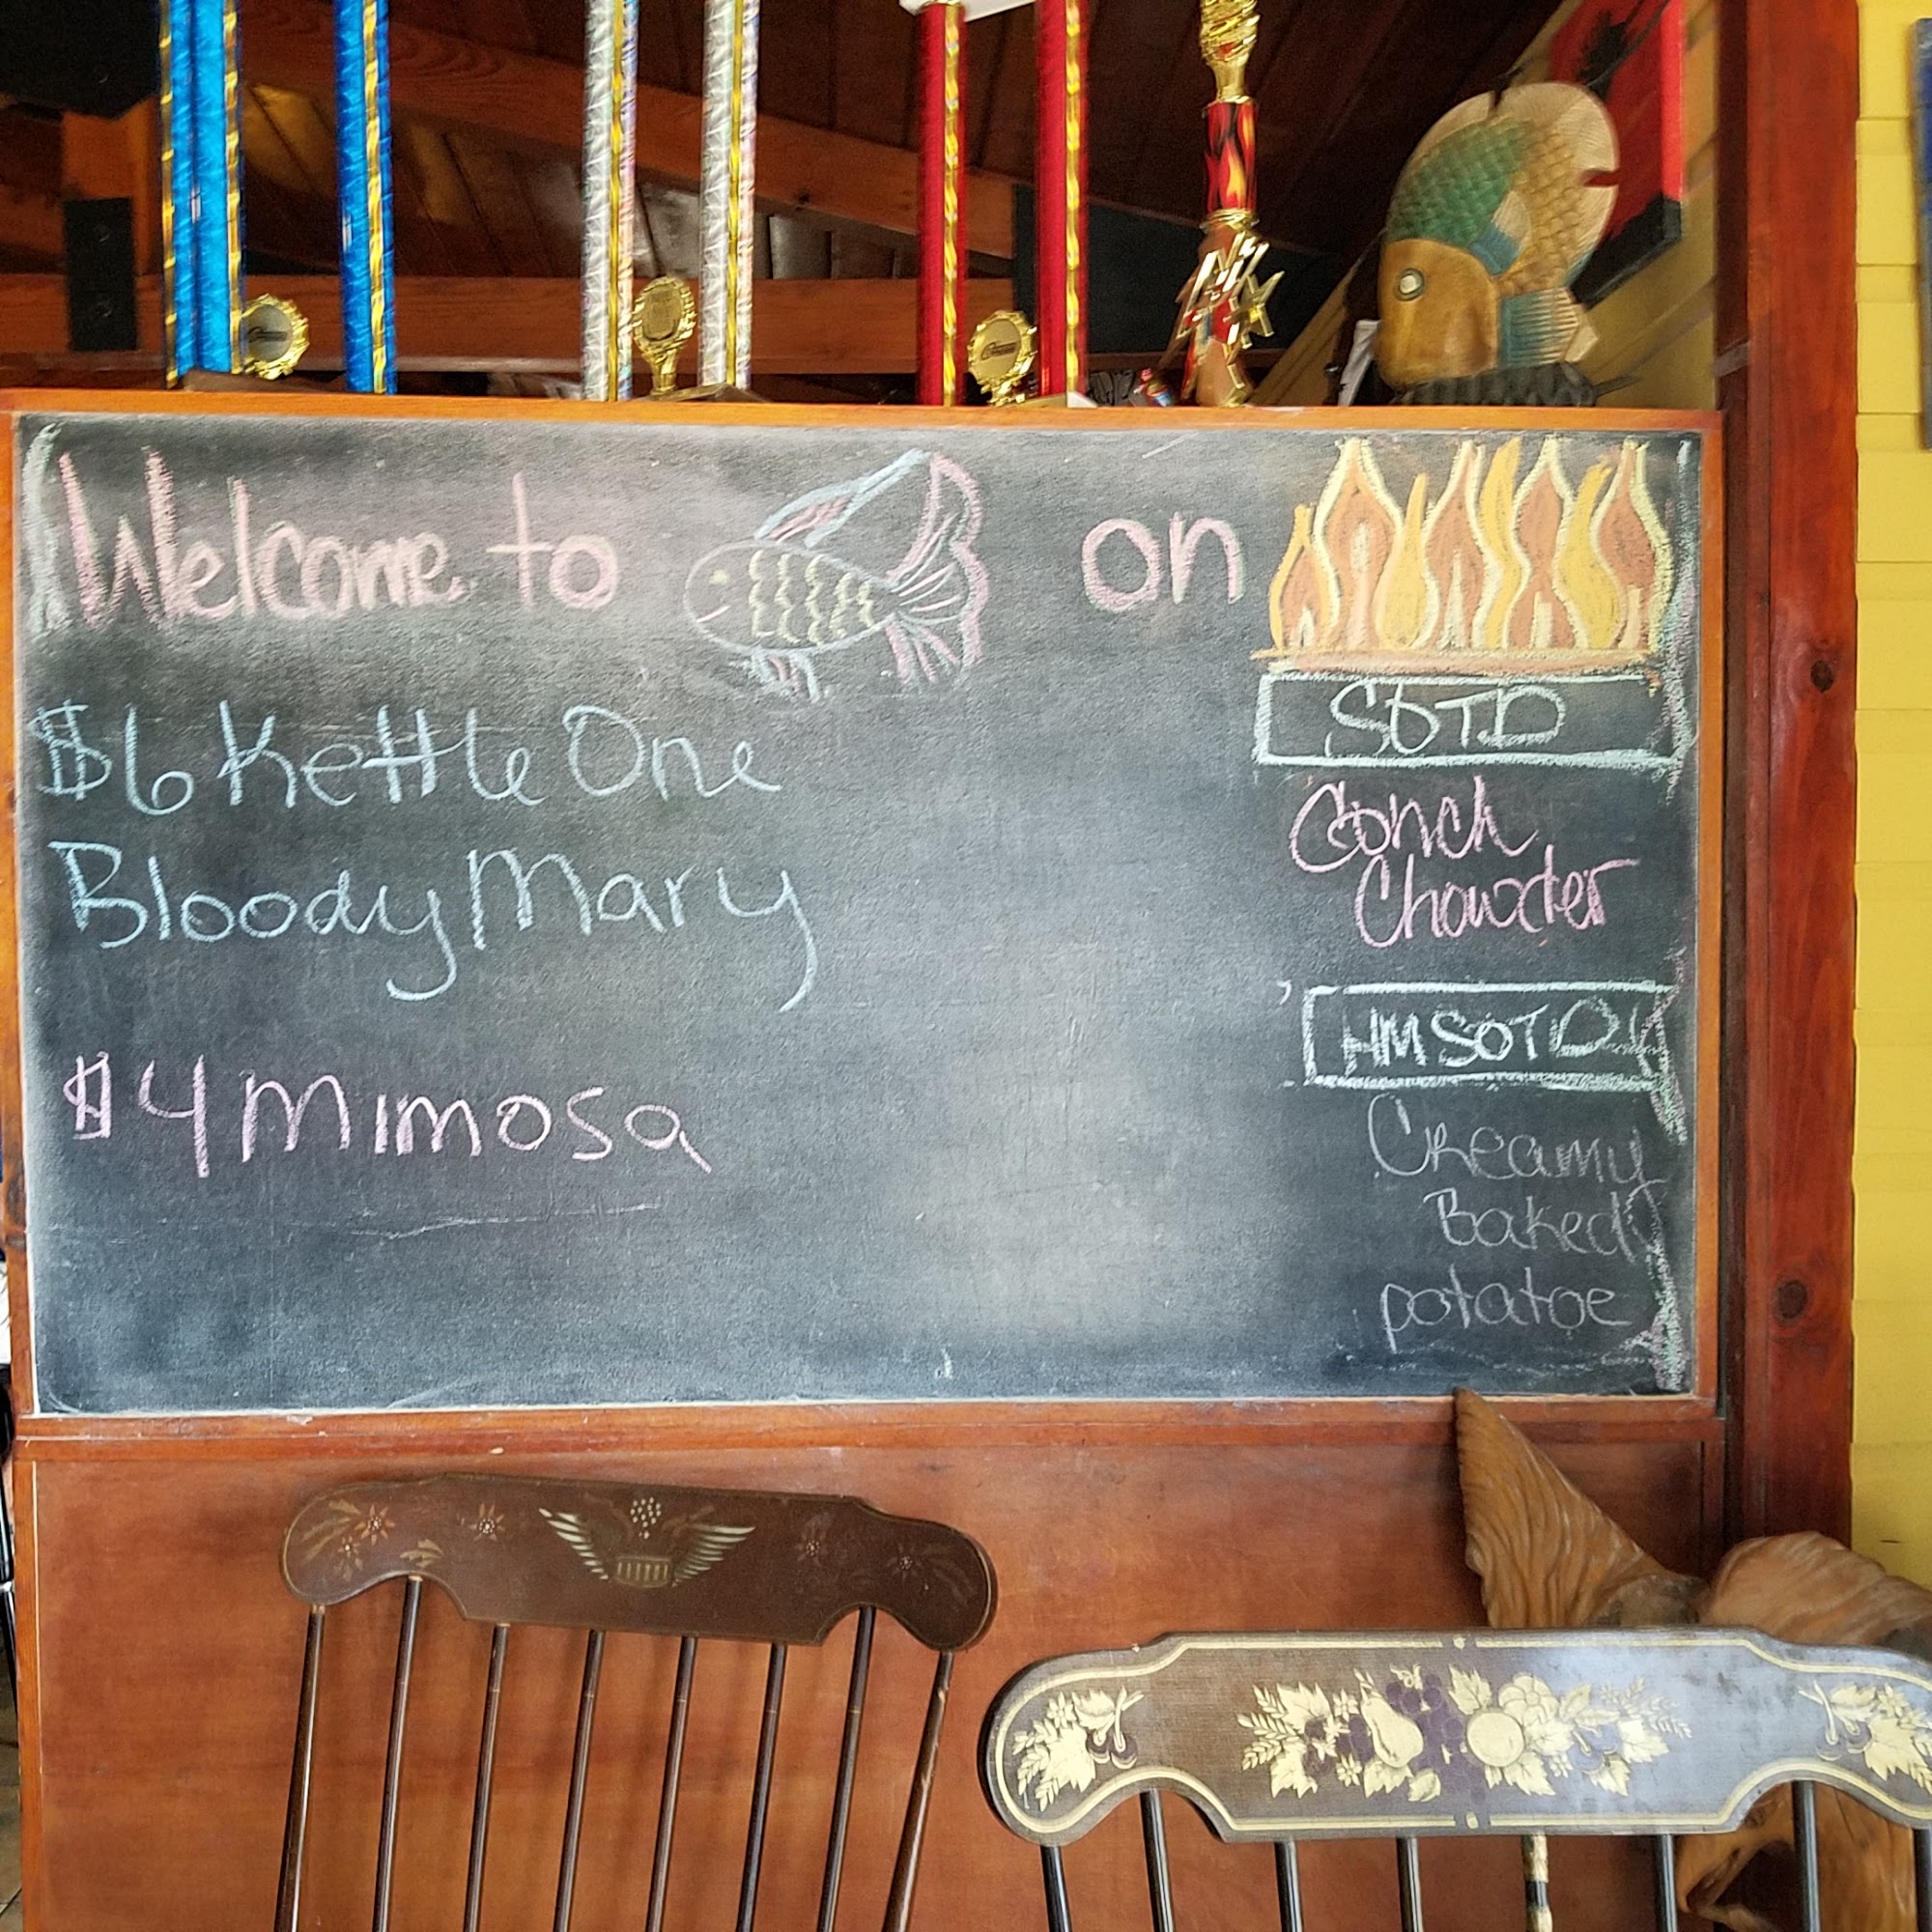 Welcome to on
$6 Kettle One
Bloody Mary
$4 Mimosa
SOTD
Conch
Chowder
HMSOTD
Creamy
Baked
potatoe